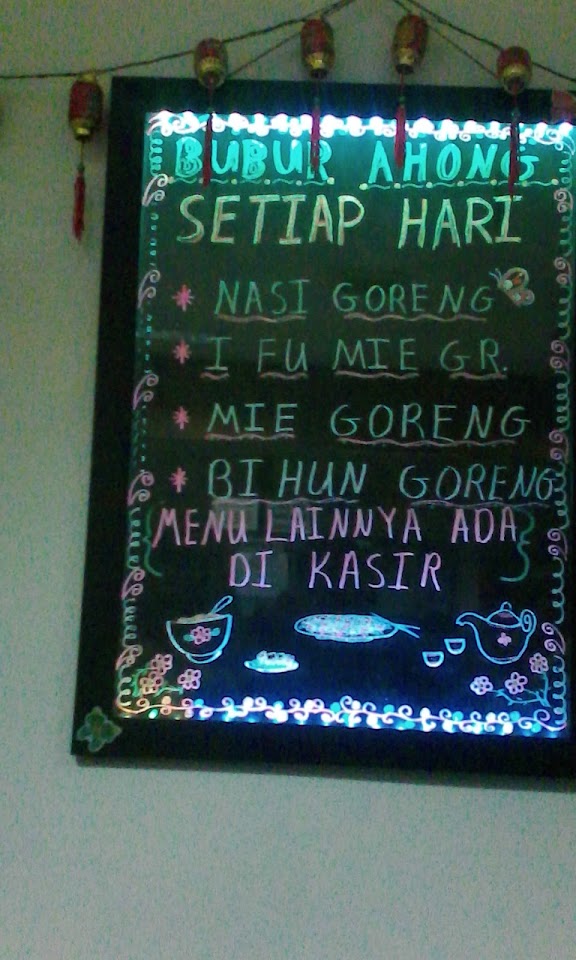 BUBUR AHONG
SETIAP HARI
* NASI GORENG
* I FU MIE GR.
* MIE GORENG
* BIHUN GORENG
{MENU LAINNYA ADA
DI KASIR}